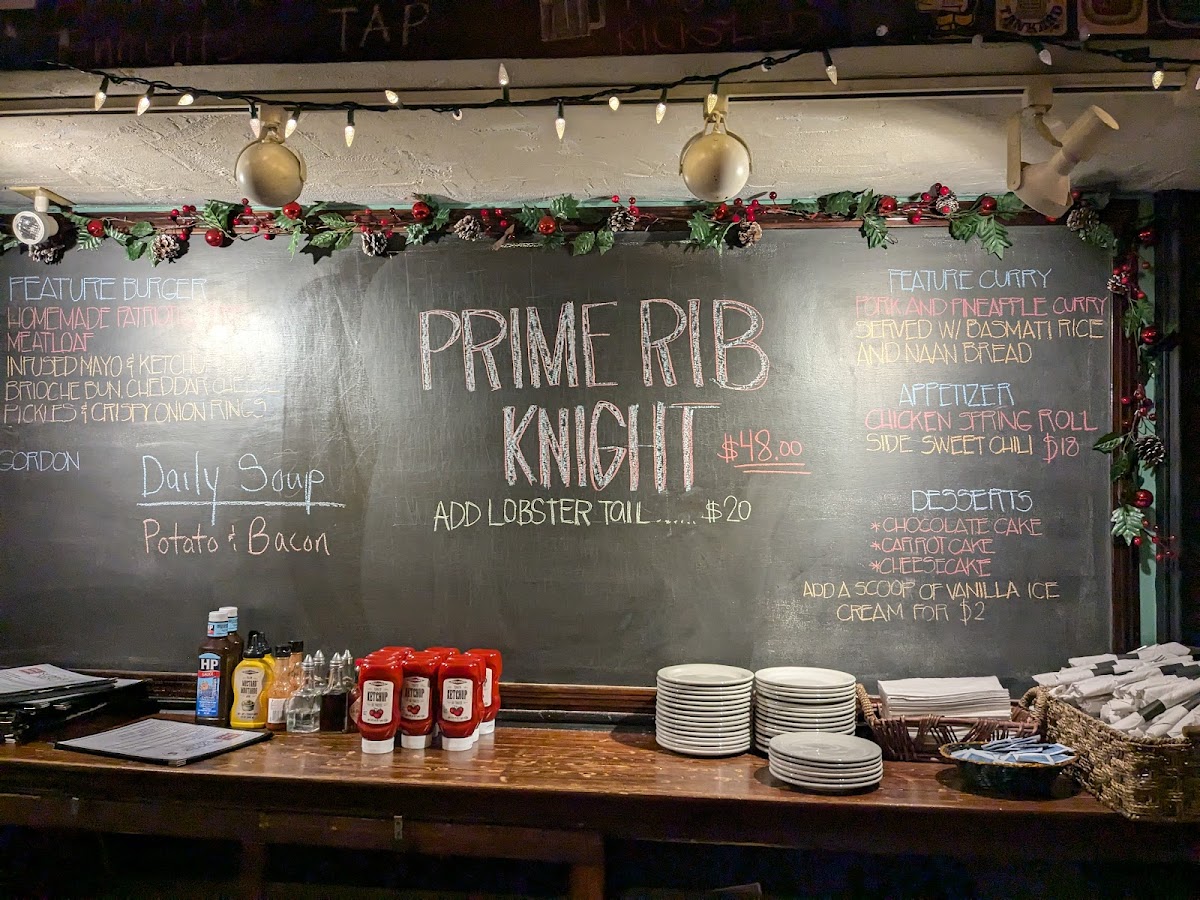 TAP
FEATURE BURGER
HOMEMADE
MEATLOAF
INFUSED MAYO & KETCHUP
BRIOCHE BUN, CHEDDAR CHEESE
PICKLES & CRISPY ONION RINGS
GORDON
Daily Soup
Potato & Bacon
PRIME RIB
KNIGHT
$48.00
ADD LOBSTER TAIL...... $20
FEATURE CURRY
PORK AND PINEAPPLE CURRY
SERVED W/ BASMATI RICE
AND NAAN BREAD
APPETIZER
CHICKEN SPRING ROLL
SIDE SWEET CHILI $18
DESSERTS
*CHOCOLATE CAKE
*CARROT CAKE
*CHEESECAKE
ADD A SCOOP OF VANILLA ICE
CREAM FOR $2
HP
KETCHUP
KETCHUP
KETCHUP